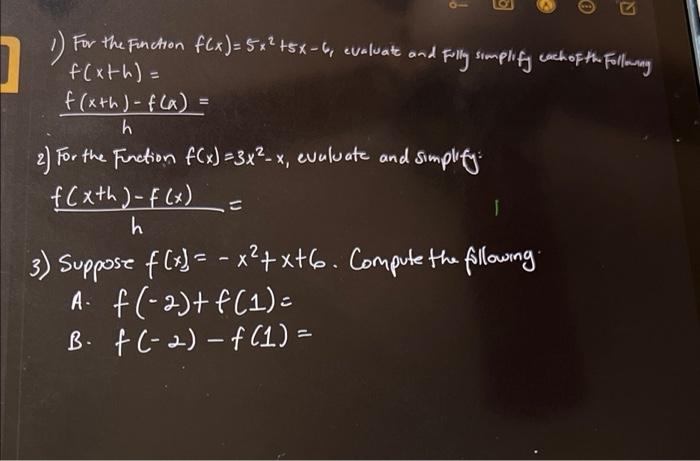 1) For the Function f(x) = 5x² + 5x - 6, evaluate and Fully simplify each of the Following
f(x+h) =
f(x+h) - f(x) =
h
2) For the Function f(x) = 3x² - x, evaluate and simplify:
f(x+h) - f(x) =
h
3) Suppose f(x) = - x² + x + 6. Compute the following:
A. f(-2) + f(1) =
B. f(-2) - f(1) =